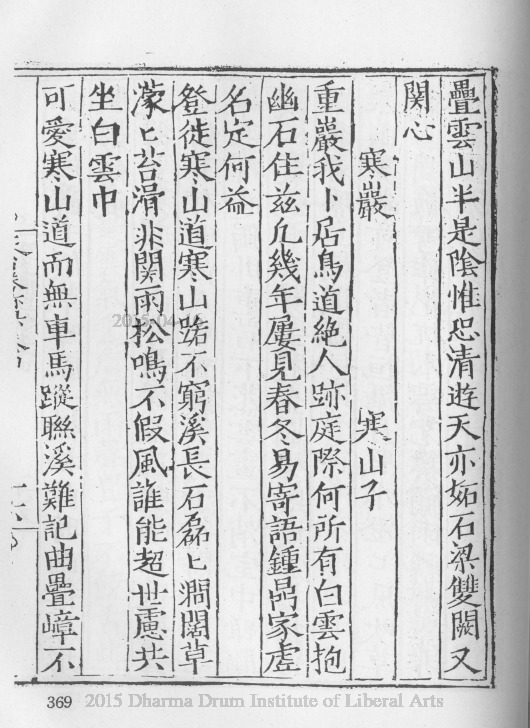 疊雲山半是陰惟恐清遊天亦妬石梁雙闕又
関心
寒巖　寒山子
重巖我卜居鳥道絶人跡庭際何所有白雲抱
幽石住茲凢幾年屢見春冬易寄語鍾鼎家虗
名定何益
登徙寒山道寒山路不窮溪長石磊匕澗闊草
濛匕苔滑非関雨松鳴不假風誰能超世慮共
坐白雲中
可愛寒山道而無車馬蹤聯溪難記曲疊嶂不
369
2015 Dharma Drum Institute of Liberal Arts